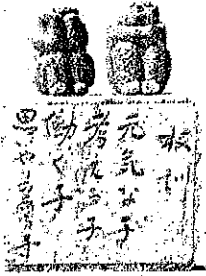 校訓
元気な子
考える子
働く子
思いやる子